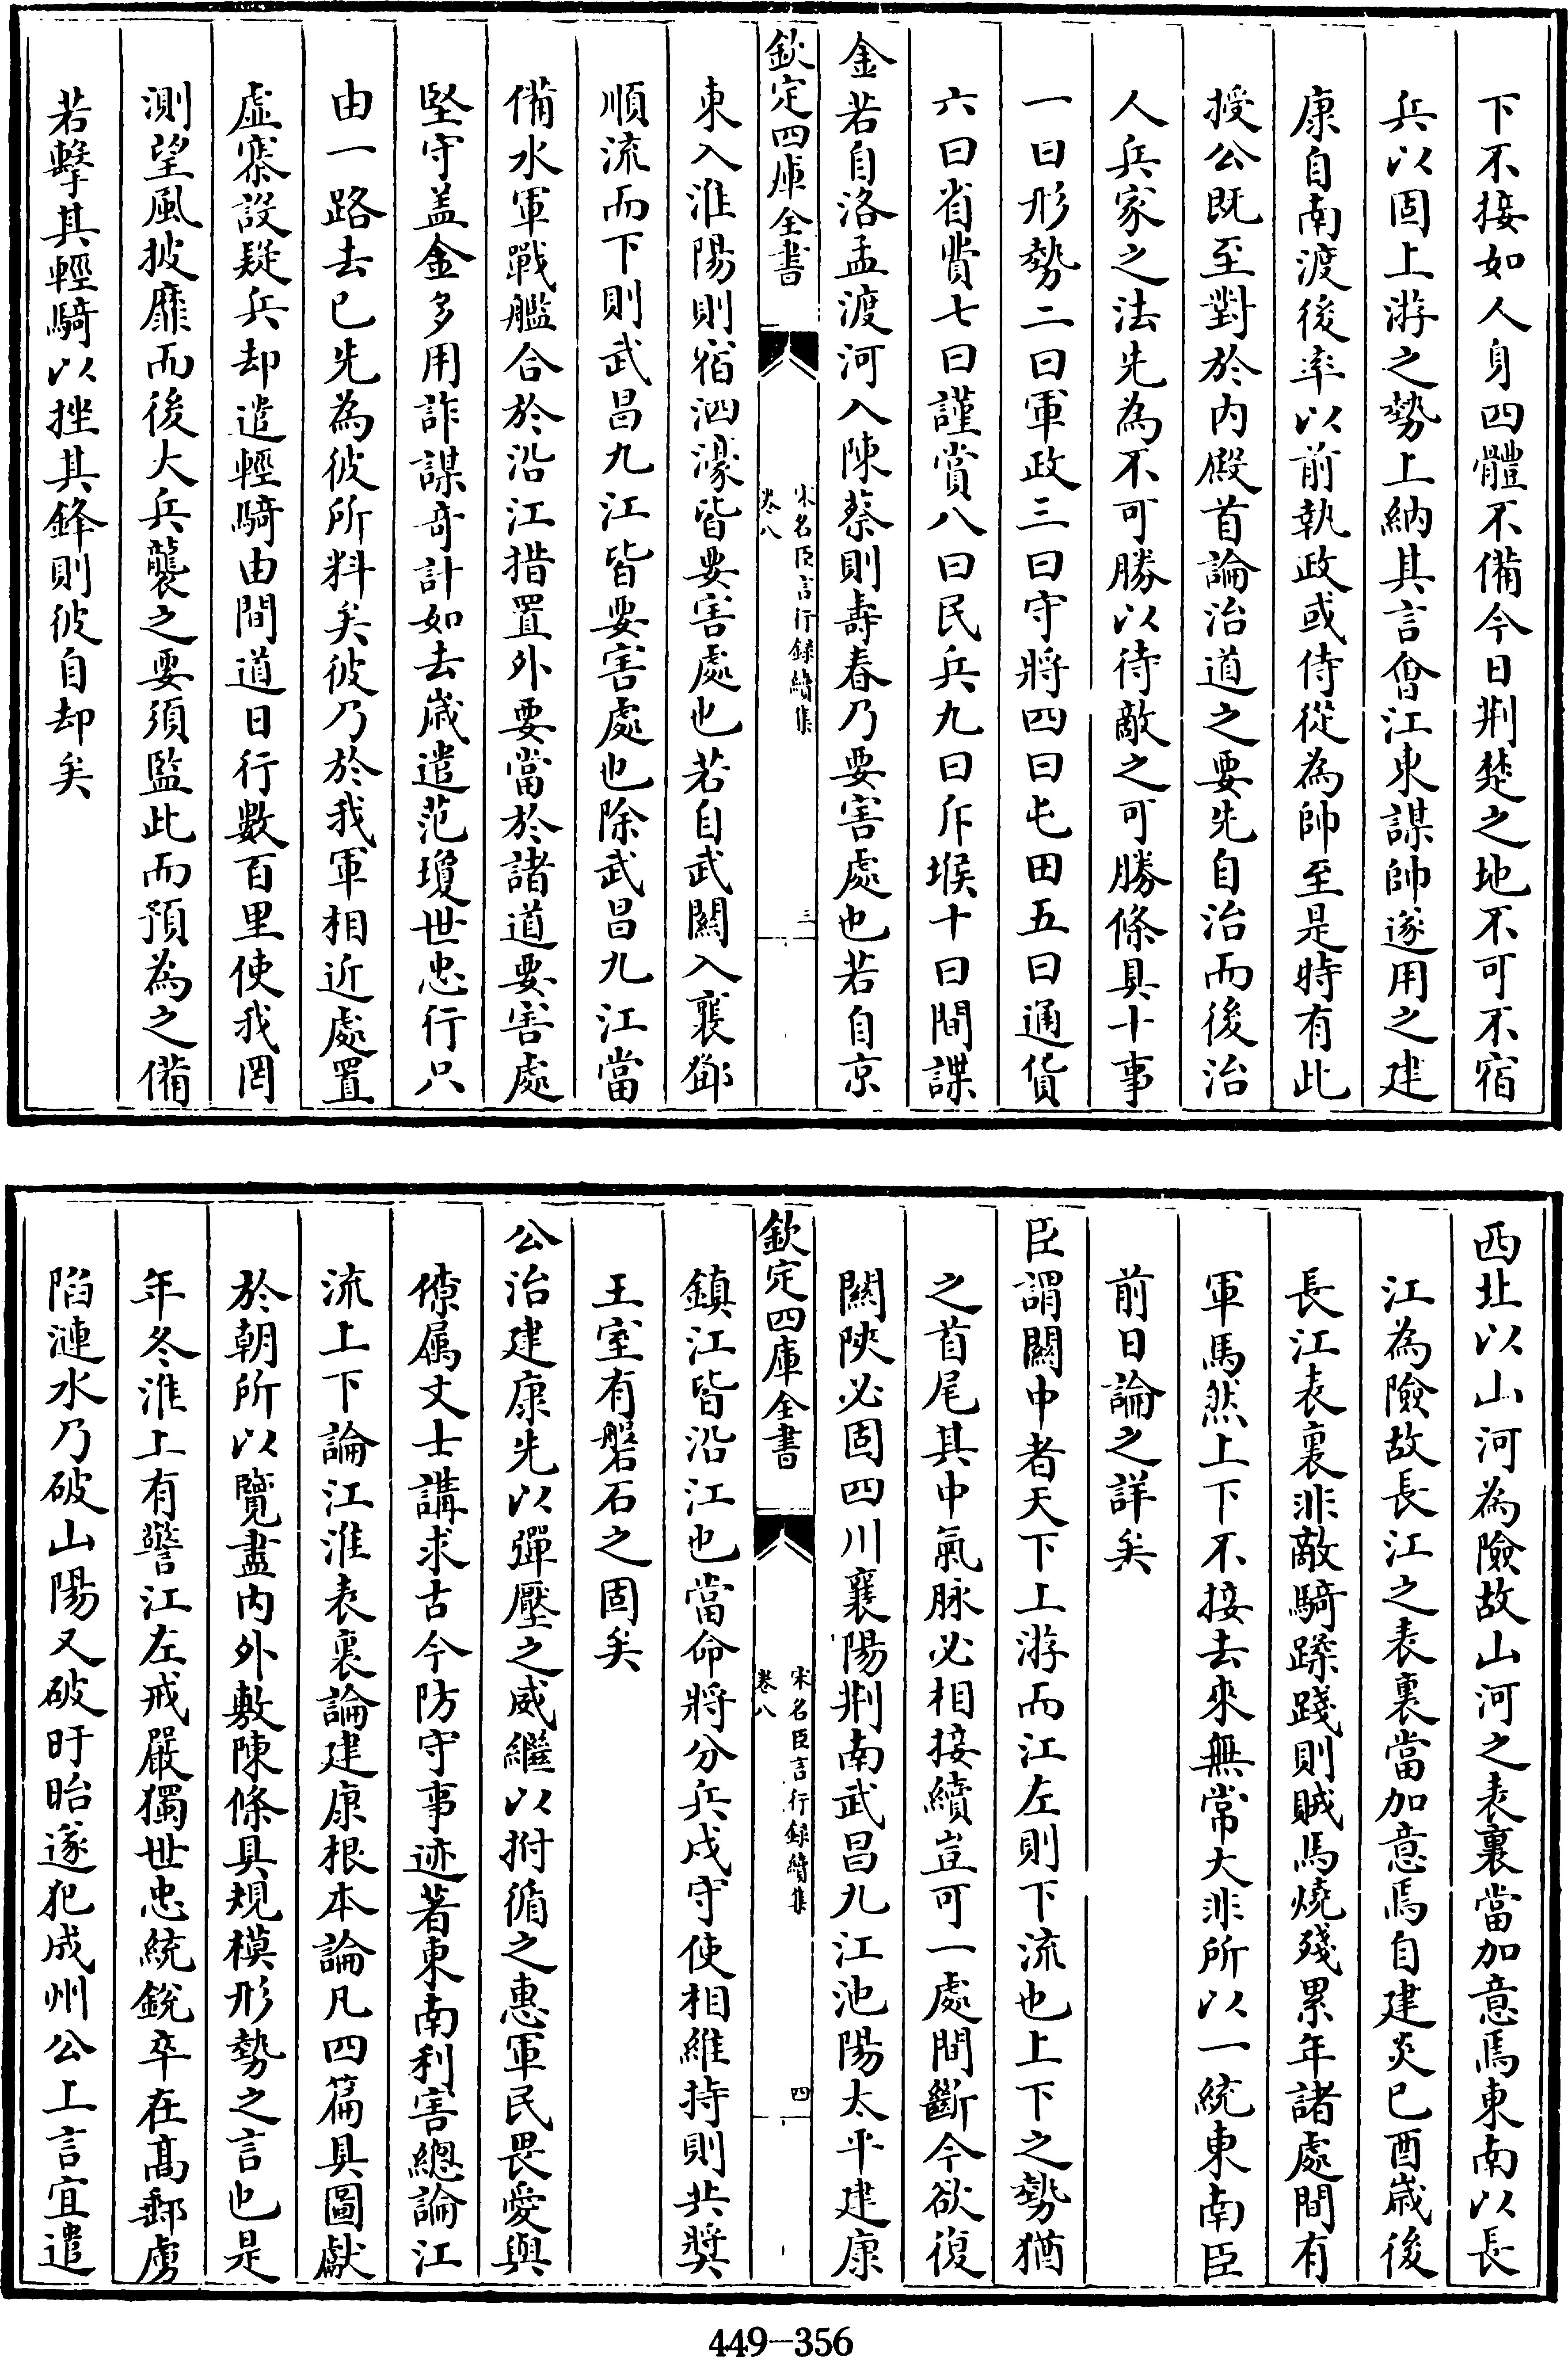 下不接如人身四體不備今日荆楚之地不可不宿
兵以固上游之勢上納其言會江東謀帥遂用之建
康自南渡後率以前執政或侍從為帥至是時有此
授公既至對於内殿首論治道之要先自治而後治
人兵家之法先為不可勝以待敵之可勝條具十事
一曰形勢二曰軍政三曰守將四曰屯田五曰通貨
六曰省費七曰謹賞八曰民兵九曰斥堠十曰間諜
金若自洛孟渡河入陳蔡則壽春乃要害處也若自京
欽定四庫全書
宋名臣言行録續集
卷八
三
東入淮陽則宿泗濠皆要害處也若自武關入襄鄧
順流而下則武昌九江皆要害處也除武昌九江當
備水軍戰艦合於沿江措置外要當於諸道要害處
堅守盖金多用詐謀竒計如去歲遣范瓊世忠行只
由一路去已先為彼所料矣彼乃於我軍相近處置
虚寨設疑兵却遣輕騎由間道日行數百里使我罔
測望風披靡而後大兵襲之要須監此而預為之備
若擊其輕騎以挫其鋒則彼自却矣
西北以山河為險故山河之表裏當加意焉東南以長
江為險故長江之表裏當加意焉自建炎已酉歲後
長江表裏非敵騎蹂踐則賊馬燒殘累年諸處間有
軍馬然上下不接去來無常大非所以一統東南臣
前日論之詳矣
臣謂關中者天下上游而江左則下流也上下之勢猶
之首尾其中氣脉必相接續豈可一處間斷今欲復
關陜必固四川襄陽荆南武昌九江池陽太平建康
欽定四庫全書
宋名臣言行録續集
卷八
四
鎮江皆沿江也當命將分兵戍守使相維持則共奬
王室有磐石之固矣
公治建康先以彈壓之威繼以拊循之惠軍民畏愛與
僚属文士講求古今防守事迹著東南利害總論江
流上下論江淮表裏論建康根本論凡四篇具圖獻
於朝所以覽盡内外敷陳條具規模形勢之言也是
年冬淮上有警江左戒嚴獨世忠統銳卒在髙郵虜
陷漣水乃破山陽又破盱眙遂犯成州公上言宜遣
449-356